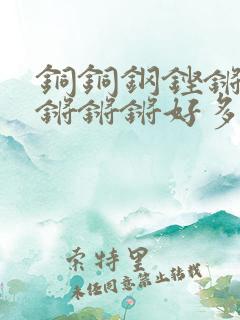 銅銅鋼鏗鏘
鏘鏘鏘好多
索特里
未经同意禁止转载